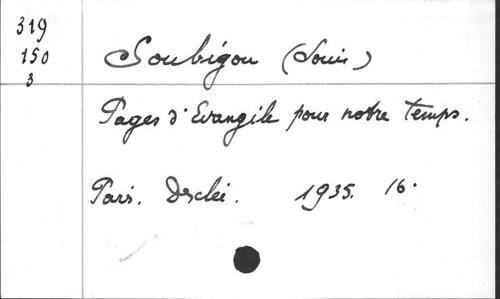 319
150
3
Soubigou (Louis)
Pages d'Evangile pour notre temps.
Paris. Desclée. 1935. 16°